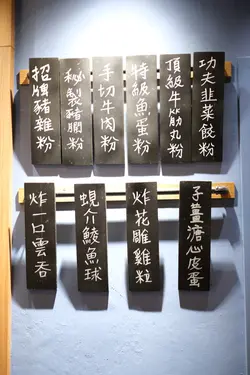 功夫韭菜餃粉
頂級牛筋丸粉
特級魚蛋粉
手切牛肉粉
秘製豬膶粉
招牌豬雜粉
子薑溏心皮蛋
炸花雕雞粒
蜆介鯪魚球
炸一口雲吞